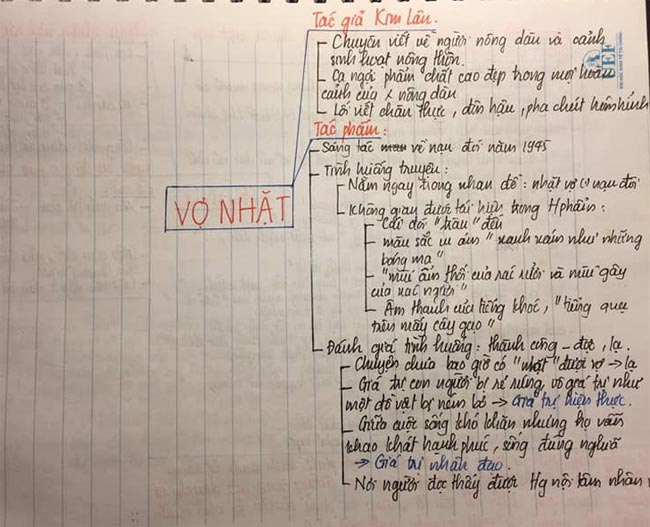 Tác giả Kim Lân.
Chuyên viết về người nông dân và cảnh
sinh hoạt nông thôn.
Ca ngợi phẩm chất cao đẹp trong mọi hoàn
cảnh của x nông dân
Lối viết chân thực, đôn hậu, pha chút hóm hỉnh
Tác phẩm:
Sáng tác về nạn đói năm 1945
Tình huống truyện:
VỢ NHẶT
Nằm ngay trong nhan đề: nhặt vợ nạn đói
Không gian được tái hiện trong tphẩm:
Cái đói "tràn" đến
màu sắc u ám "xanh xám như những
bóng ma"
"mùi ẩm thối của rác rưởi và mùi gây
của xác người"
Âm thanh của tiếng khóc, "tiếng quạ
trên mấy cây gạo"
Đánh giá tình huống: thành công - độc, lạ.
Chuyện chưa bao giờ có "nhặt" được vợ → lạ
Giá trị con người bị rẻ rúng, vô giá trị như
một đồ vật bị ném bỏ → Giá trị hiện thực.
Giữa cuộc sống khó khăn nhưng họ vẫn
khao khát hạnh phúc, sống đúng nghĩa
→ Giá trị nhân đạo.
người đọc thấy được nội tâm nhân
UEF